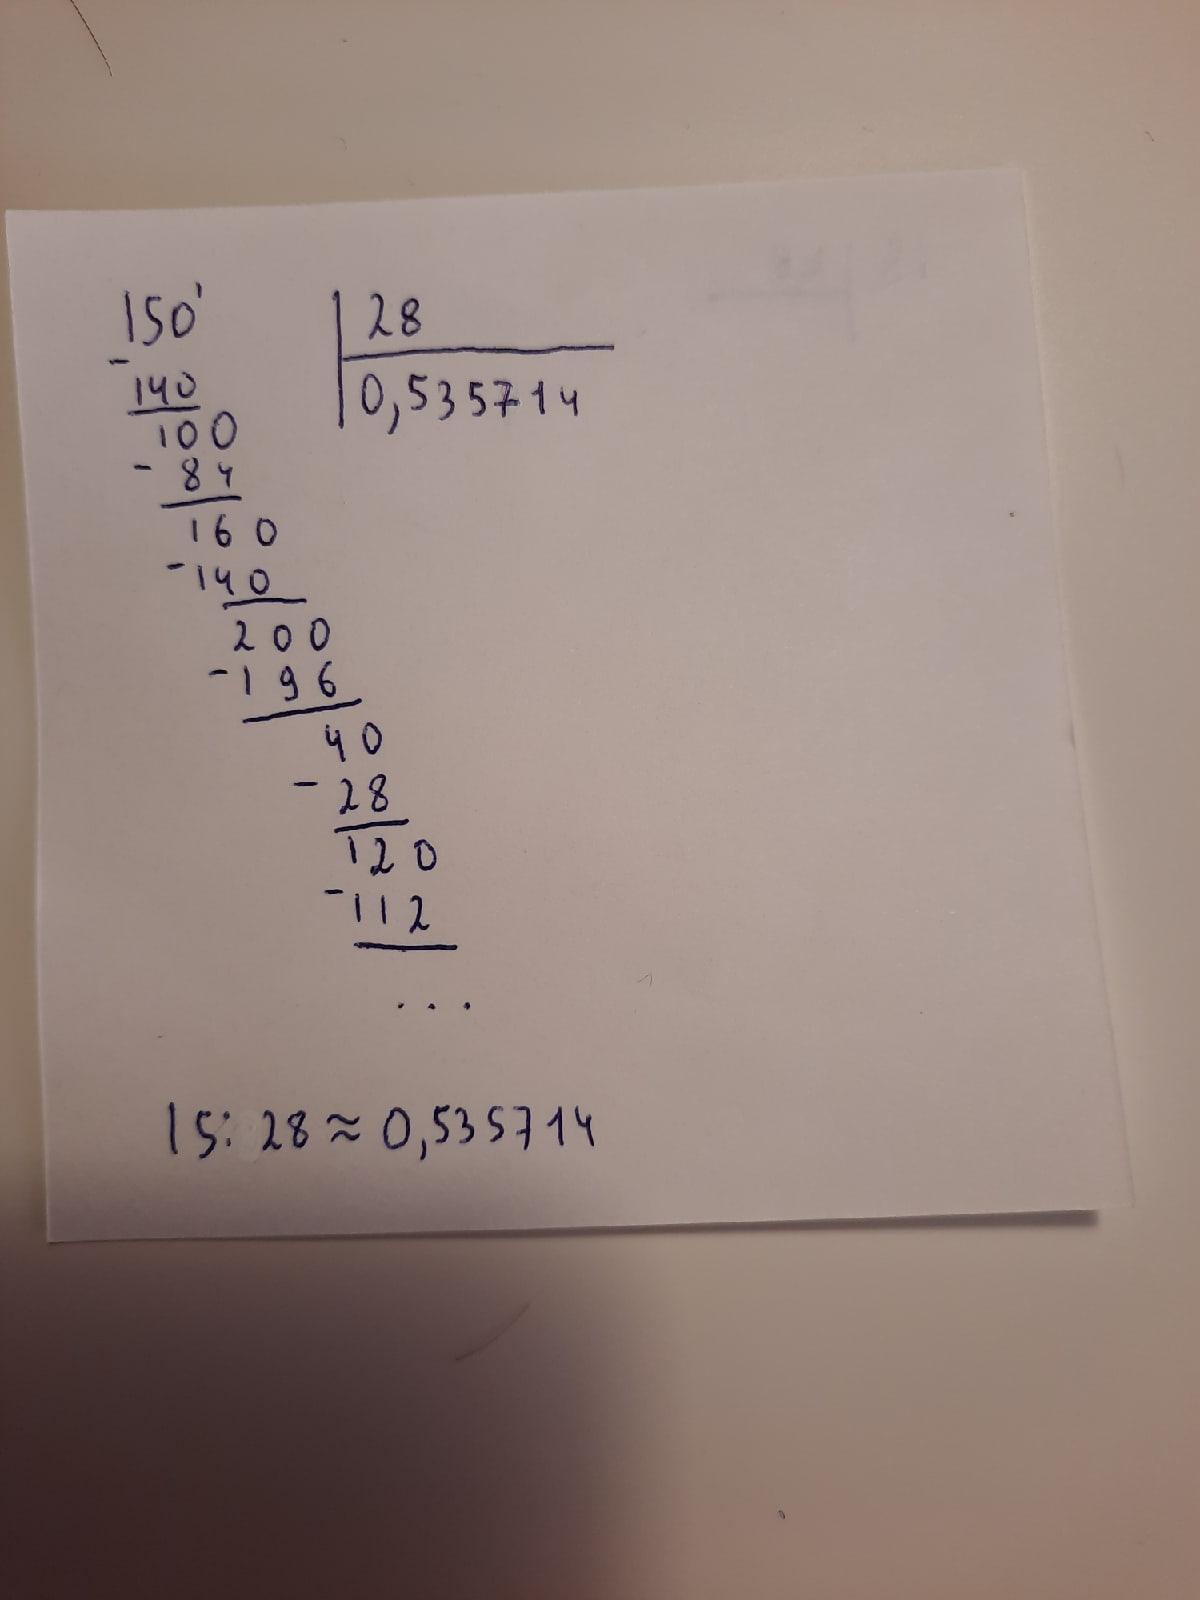 150' 28
- 140 0,535714
100
- 84
160
- 140
200
- 196
40
- 28
120
- 112
...
15: 28 ≈ 0,535714